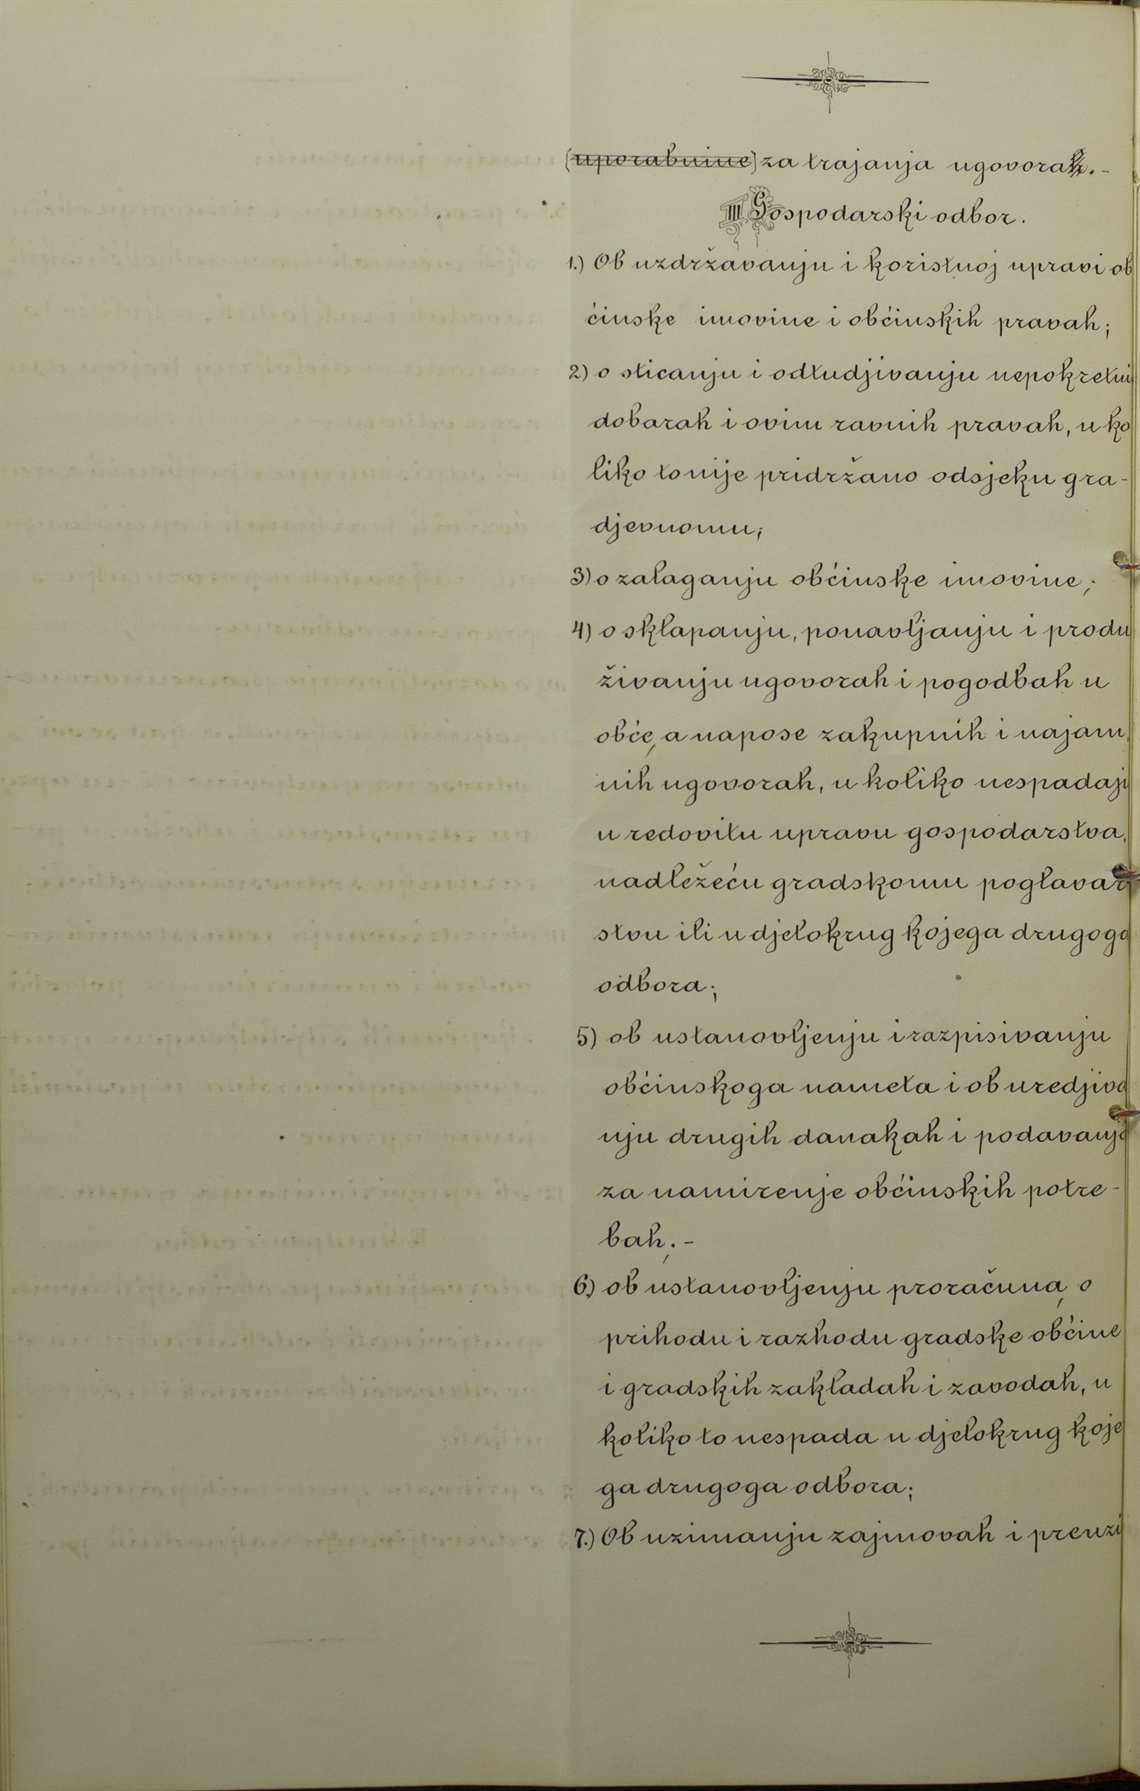 (uporabnine) za trajanja ugovora.-
III Gospodarski odbor.
1.) Ob uzdržavanju i koristnoj upravi ob
ćinske imovine i obćinskih pravah;
2) o sticanju i odtudjivanju nepokretni
dobarah i ovim ravnih pravah, u ko
liko to nije pridržano odsjeku gra-
djevnomu;
3) o zalaganju obćinske imovine;
4) o sklapanju, ponavljanju i produ
živanju ugovorah i pogodbah u
obće, a napose zakupnih i najam
nih ugovorah, u koliko nespadaju
u redovitu upravu gospodarstva,
nadležeću gradskomu poglavar
stvu ili u djelokrug kojega drugoga
odbora;
5) ob ustanovljenju i razpisivanju
obćinskoga nameta i ob uredjiva
nju drugih danakah i podavanja
za namirenje obćinskih potre-
bah;-
6.) ob ustanovljenju proračuna, o
prihodu i razhodu gradske obćine
i gradskih zakladah i zavodah, u
koliko to nespada u djelokrug koje
ga drugoga odbora;
7.) Ob uzimanju zajmovah i preuzi